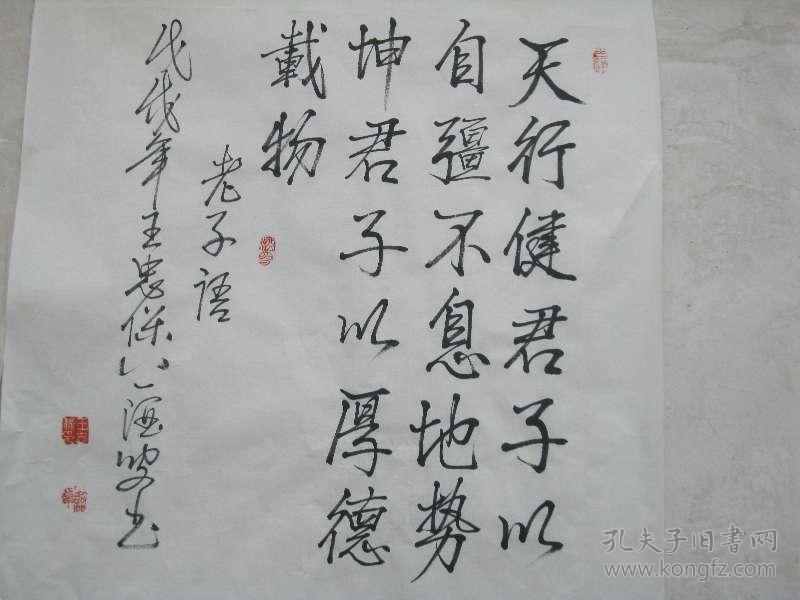 天行健君子以
自彊不息地势
坤君子以厚德
載物
老子语
戊戌年王忠保
书
孔夫子旧书网
www.kongfz.com